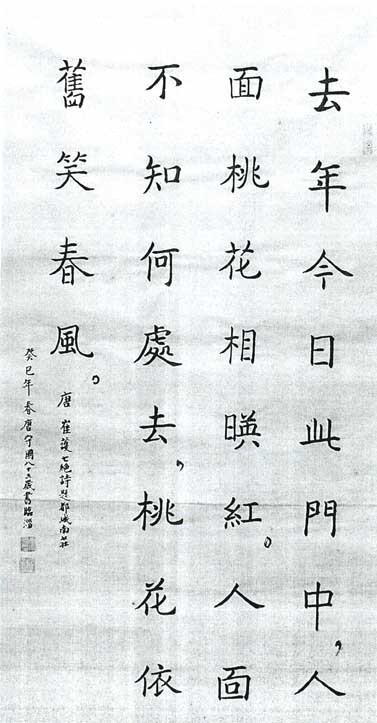 去年今日此門中，人
面桃花相暎紅。人面
不知何處去，桃花依
舊笑春風。
唐 崔護七絕詩題都城南莊
癸巳年春唐守國八十歲書臨淄